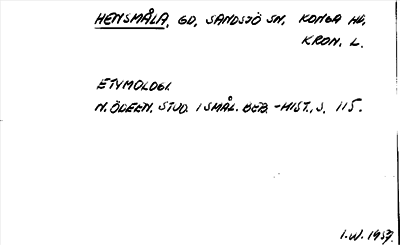 HENSMÅLA, GD, SANDSJÖ SN, KONGA HD,
KRON. L.
ETYMOLOGI.
N. ÖDEEN, STUD. I SMÅL. BEB.-HIST., S. 115.
I.W. 1957.